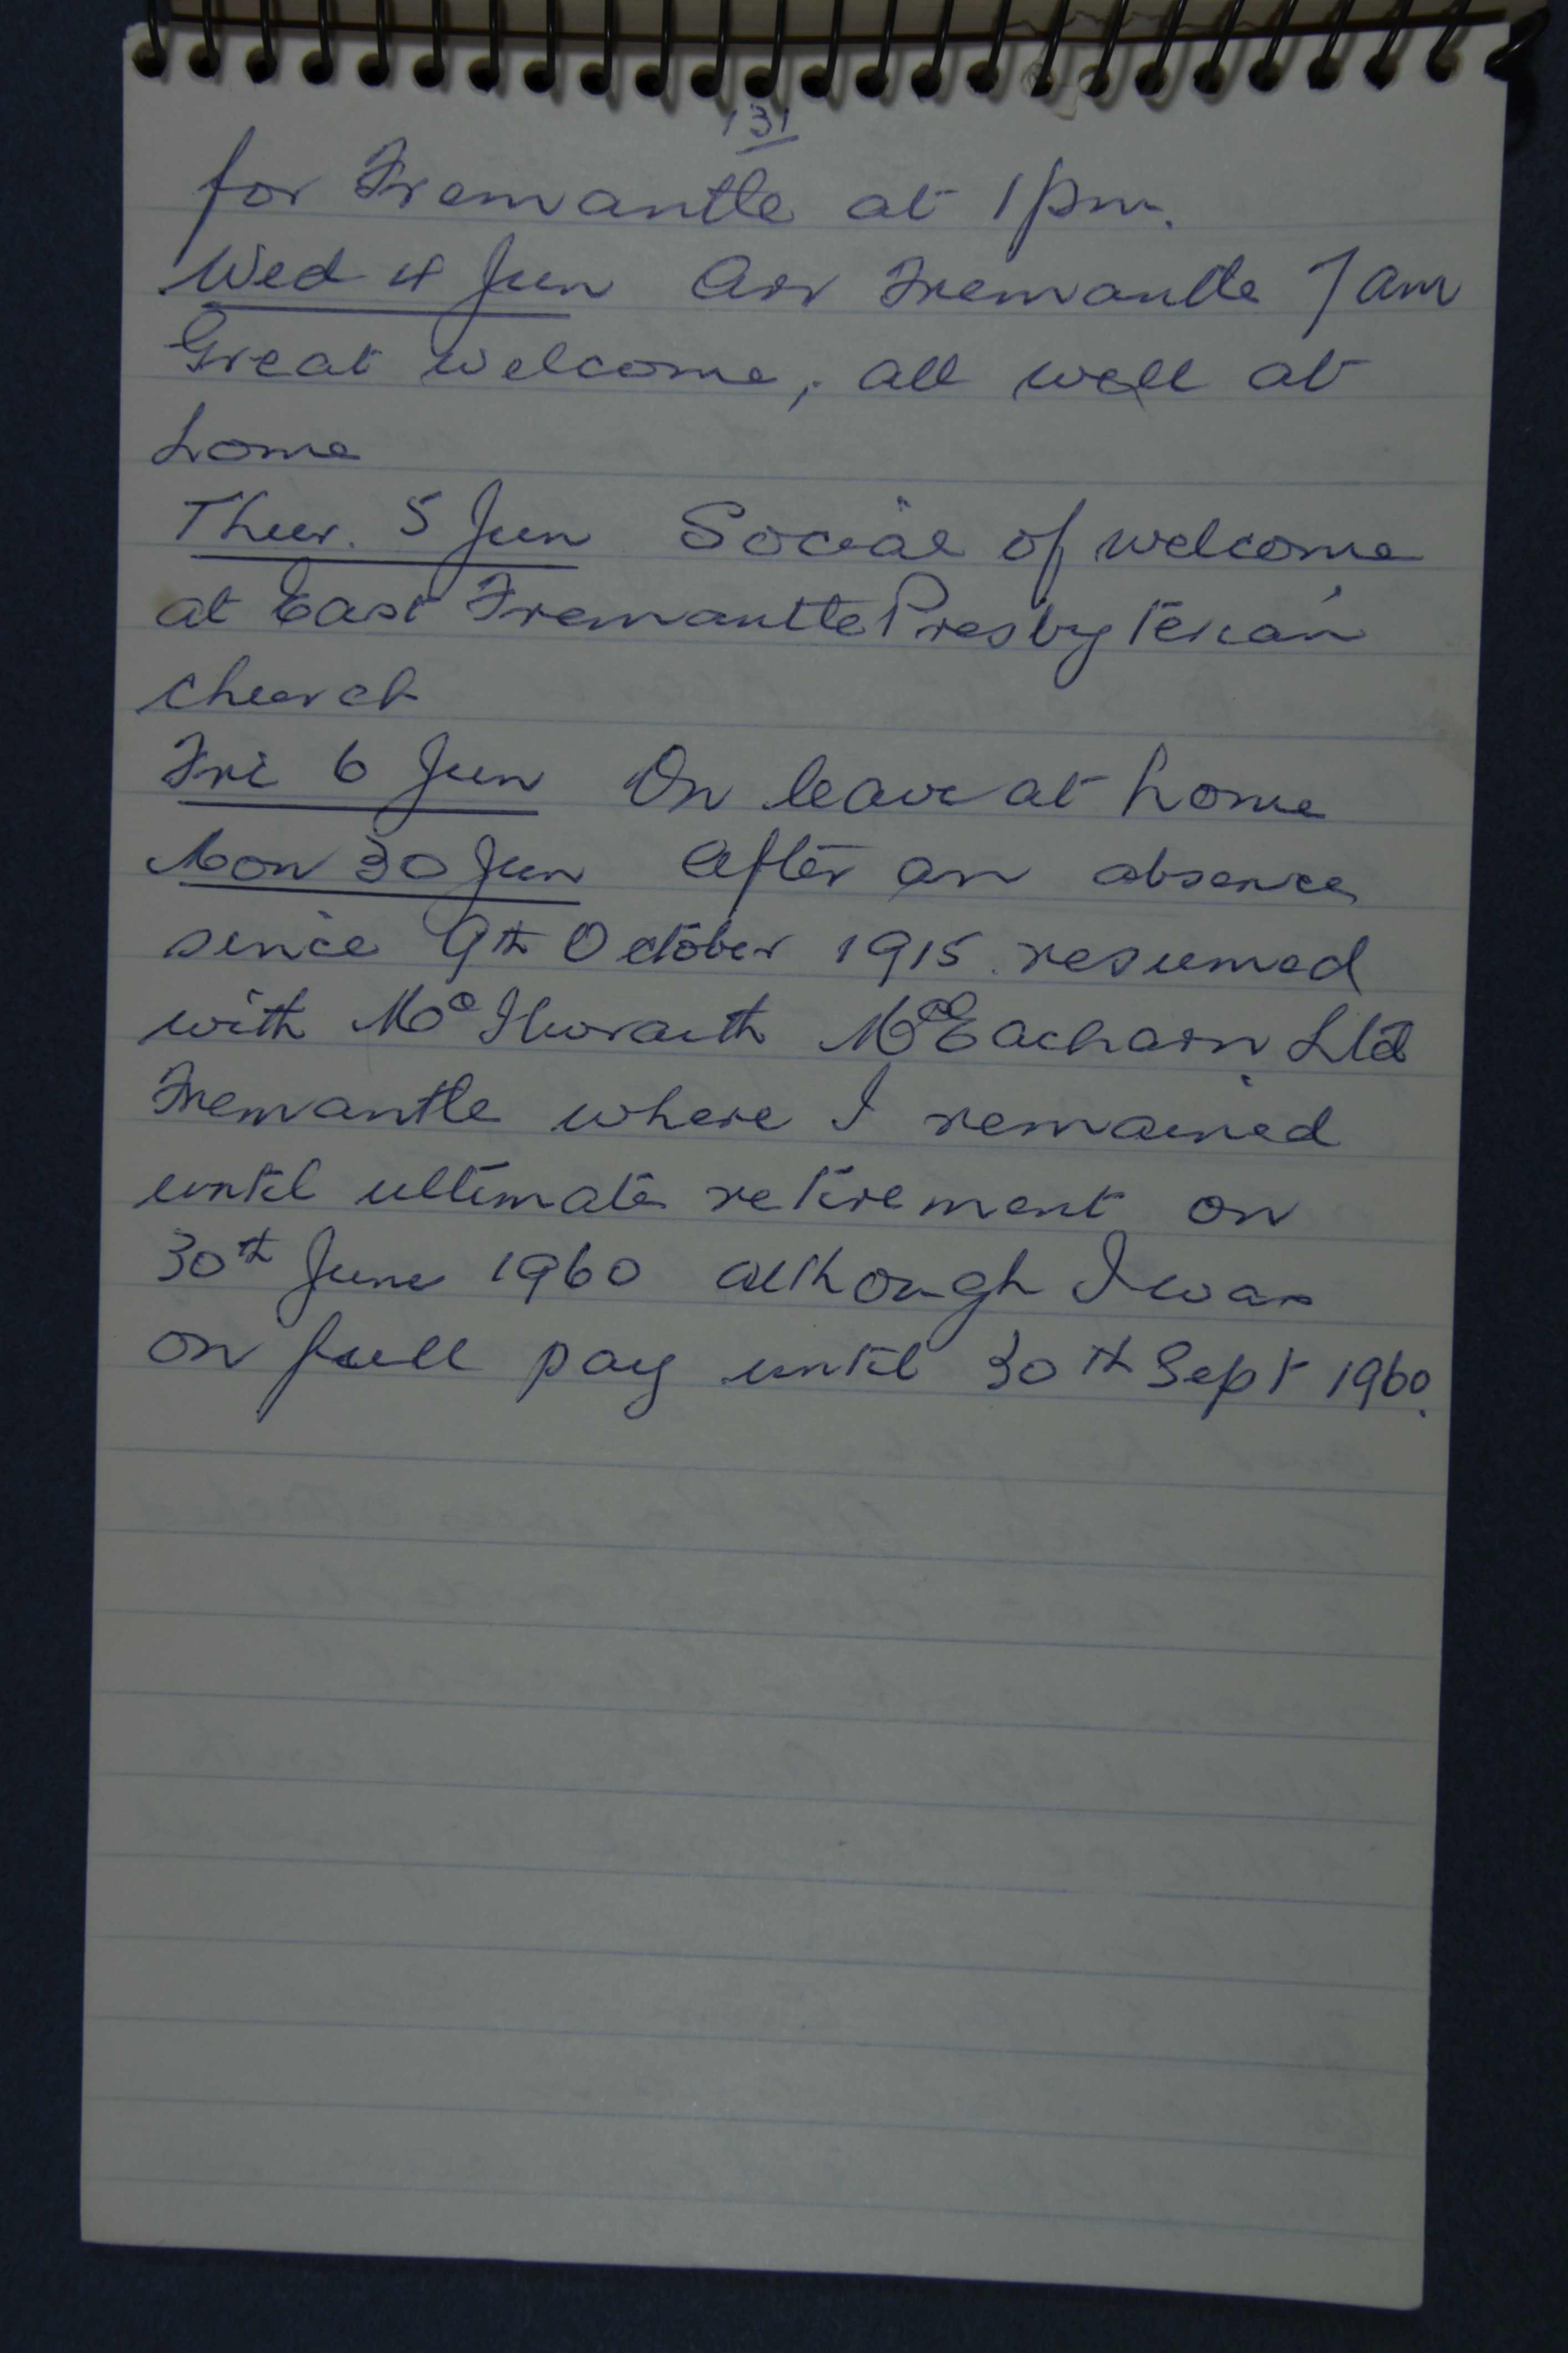 131
for Fremantle at 1pm.
Wed 4 Jun Arr Fremantle 7am
Great welcome, all well at
home
Thur. 5 Jun Social of welcome
at East Fremantle Presbyterian
church
Fri 6 Jun On leave at home
Mon 30 Jun After an absence
since 9th October 1915 resumed
with McIlwraith McEacharn Ltd
Fremantle where I remained
until ultimate retirement on
30th June 1960 although I was
on full pay until 30th Sept 1960.